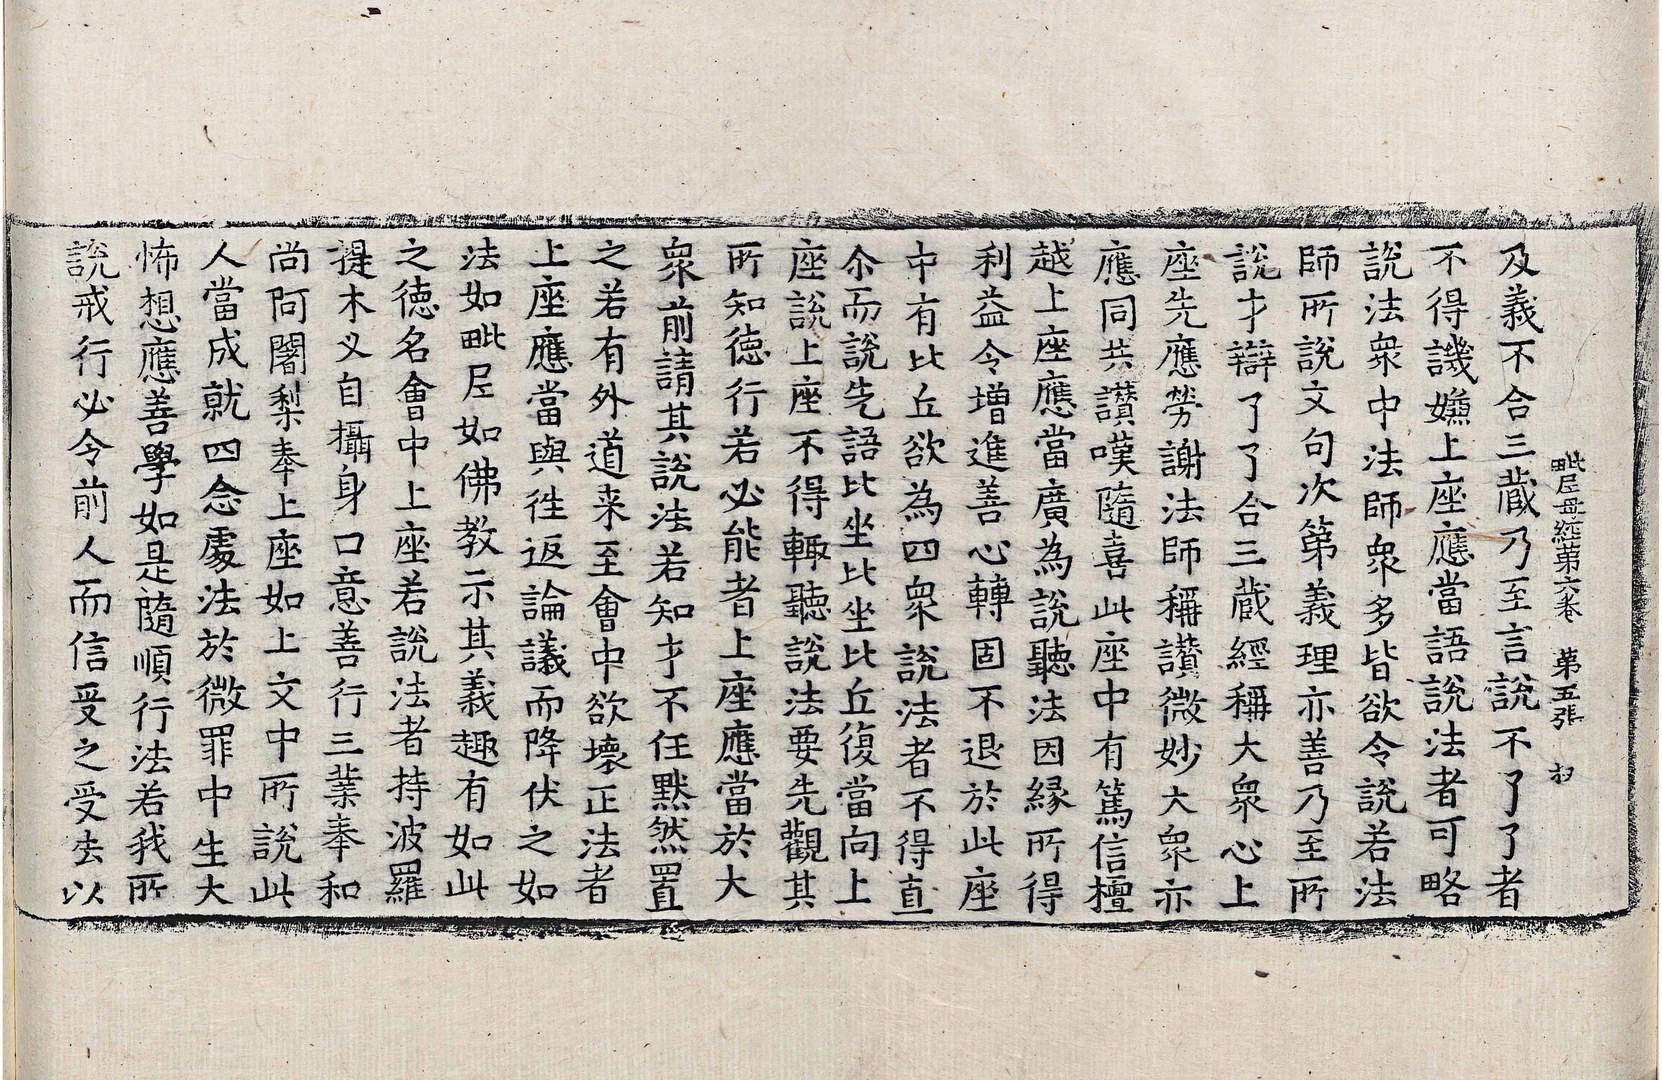 毗尼母經第六卷　第五張　扫
及義不合三藏乃至言說不了了者
不得譏嫌上座應當語說法者可略
說法衆中法師衆多皆欲令說若法
師所說文句次第義理亦善乃至所
說才辯了了合三藏經稱大衆心上
座先應勞謝法師稱讚微妙大衆亦
應同共讃嘆隨喜此座中有篤信檀
越上座應當廣為說聽法因緣所得
利益令增進善心轉固不退於此座
中有比丘欲為四衆說法者不得直
尒而說先語比坐比坐比丘復當向上
座說上座不得輙聽說法要先觀其
所知德行若必能者上座應當於大
衆前請其說法若知才不任黙然置
之若有外道来至會中欲壞正法者
上座應當與徃返論議而降伏之如
法如毗尼如佛教示其義趣有如此
之德名會中上座若說法者持波羅
提木义自攝身口意善行三業奉和
尚阿闍梨奉上座如上文中所說此
人當成就四念處法於微罪中生大
怖想應善學如是隨順行法若我所
說戒行必令前人而信受之受去以